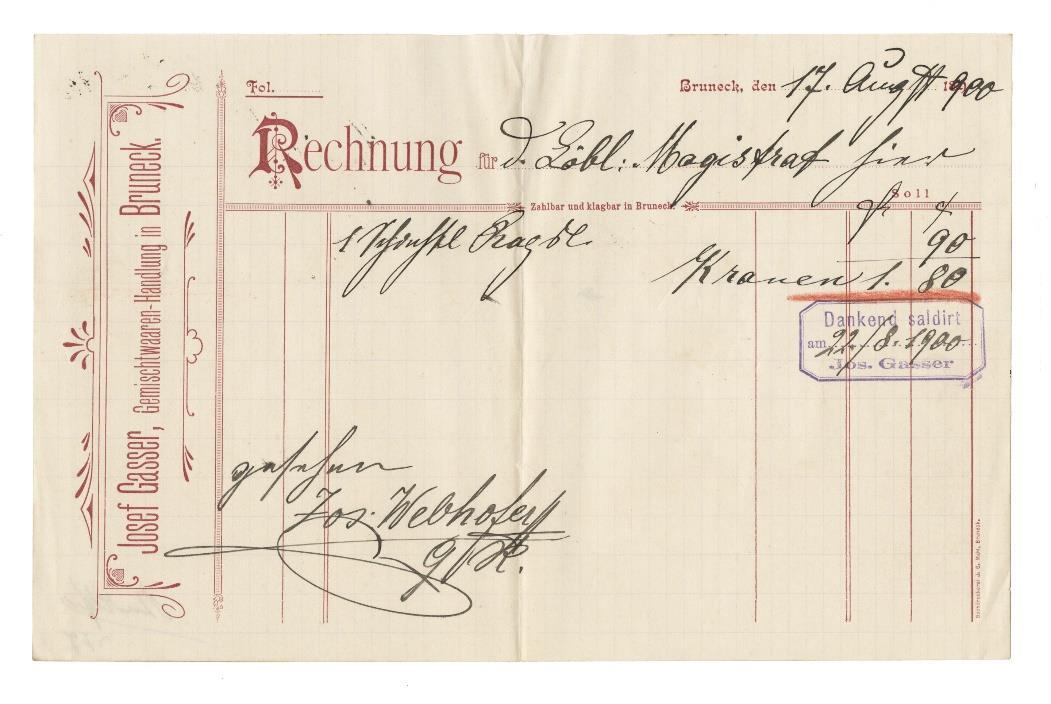 Josef Gasser, Gemischtwaaren-Handlung in Bruneck.
Fol.
Bruneck, den 17. Augst 900
Rechnung für d. Löbl: Magistrat hier
Soll
Zahlbar und klagbar in Bruneck.
f. x
1
90
Kronen 1. 80
Dankend saldirt
am 22/8. 1900
Jos. Gasser
gesehen
Jos. Webhofer
Buchdruckerei J. G. Mahl, Bruneck.